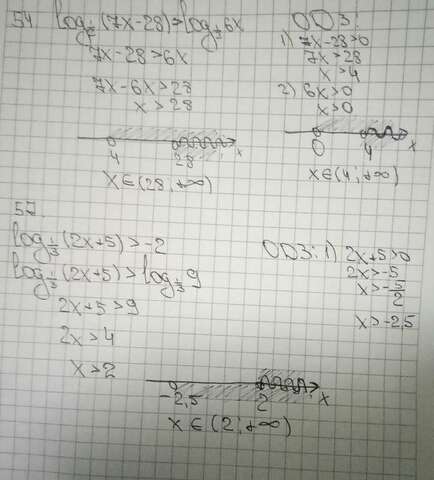 54. log½(7x-28)>log⅓6x
7x-28>6x
7x-6x>28
x>28
4 28 x
x∈(28;+∞)
ОДЗ:
1) 7x-28>0
7x>28
x>4
2) 6x>0
x>0
0 4 x
x∈(4;+∞)
57.
log⅓(2x+5)>-2
log⅓(2x+5)>log⅓9
2x+5>9
2x>4
x>2
ОДЗ: 1) 2x+5>0
2x>-5
x>-5/2
x>-2,5
-2,5 2 x
x∈(2;+∞)